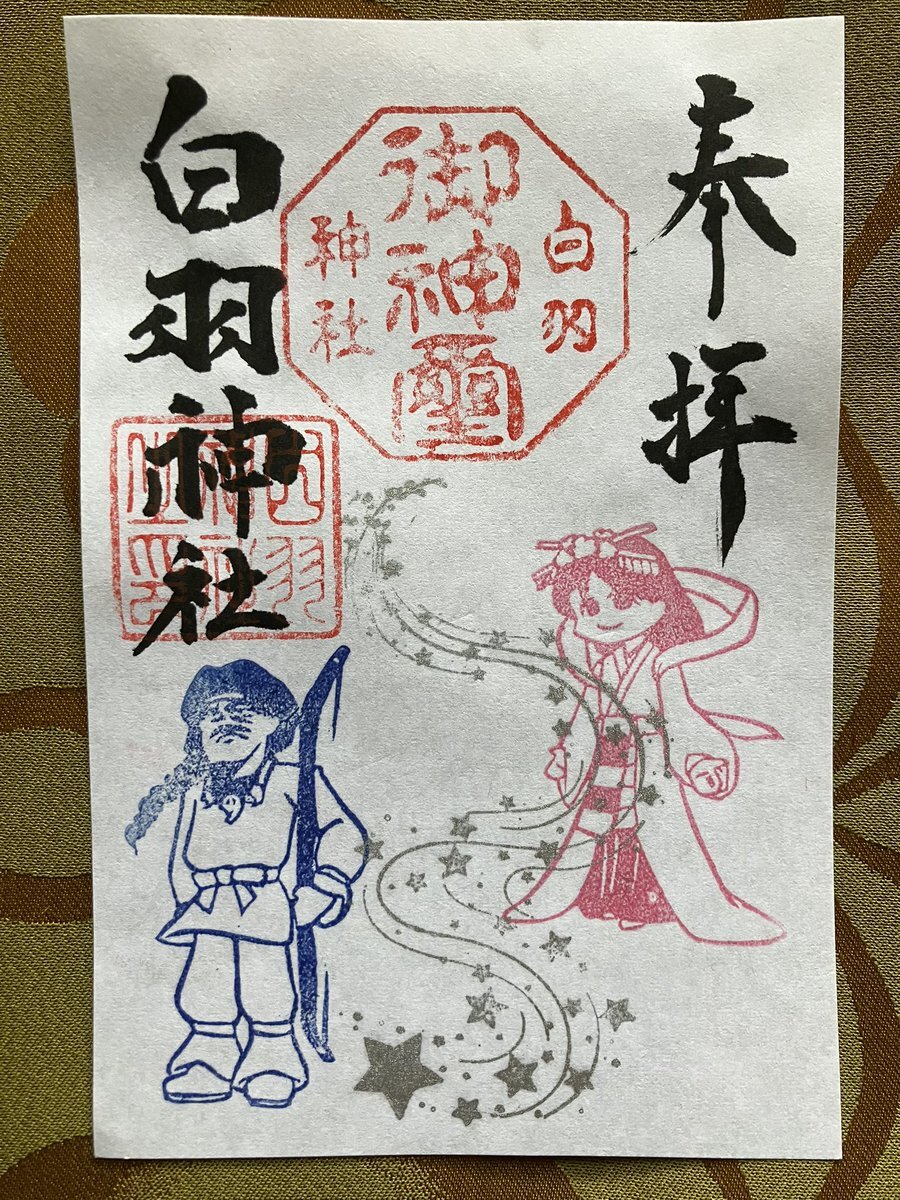 奉拝
白羽
御神璽
神社
白羽神社
白羽
神社
之印